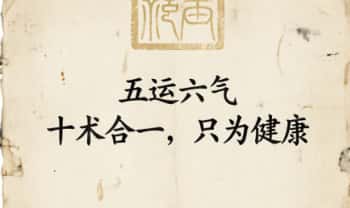 五运六气
十术合一，只为健康